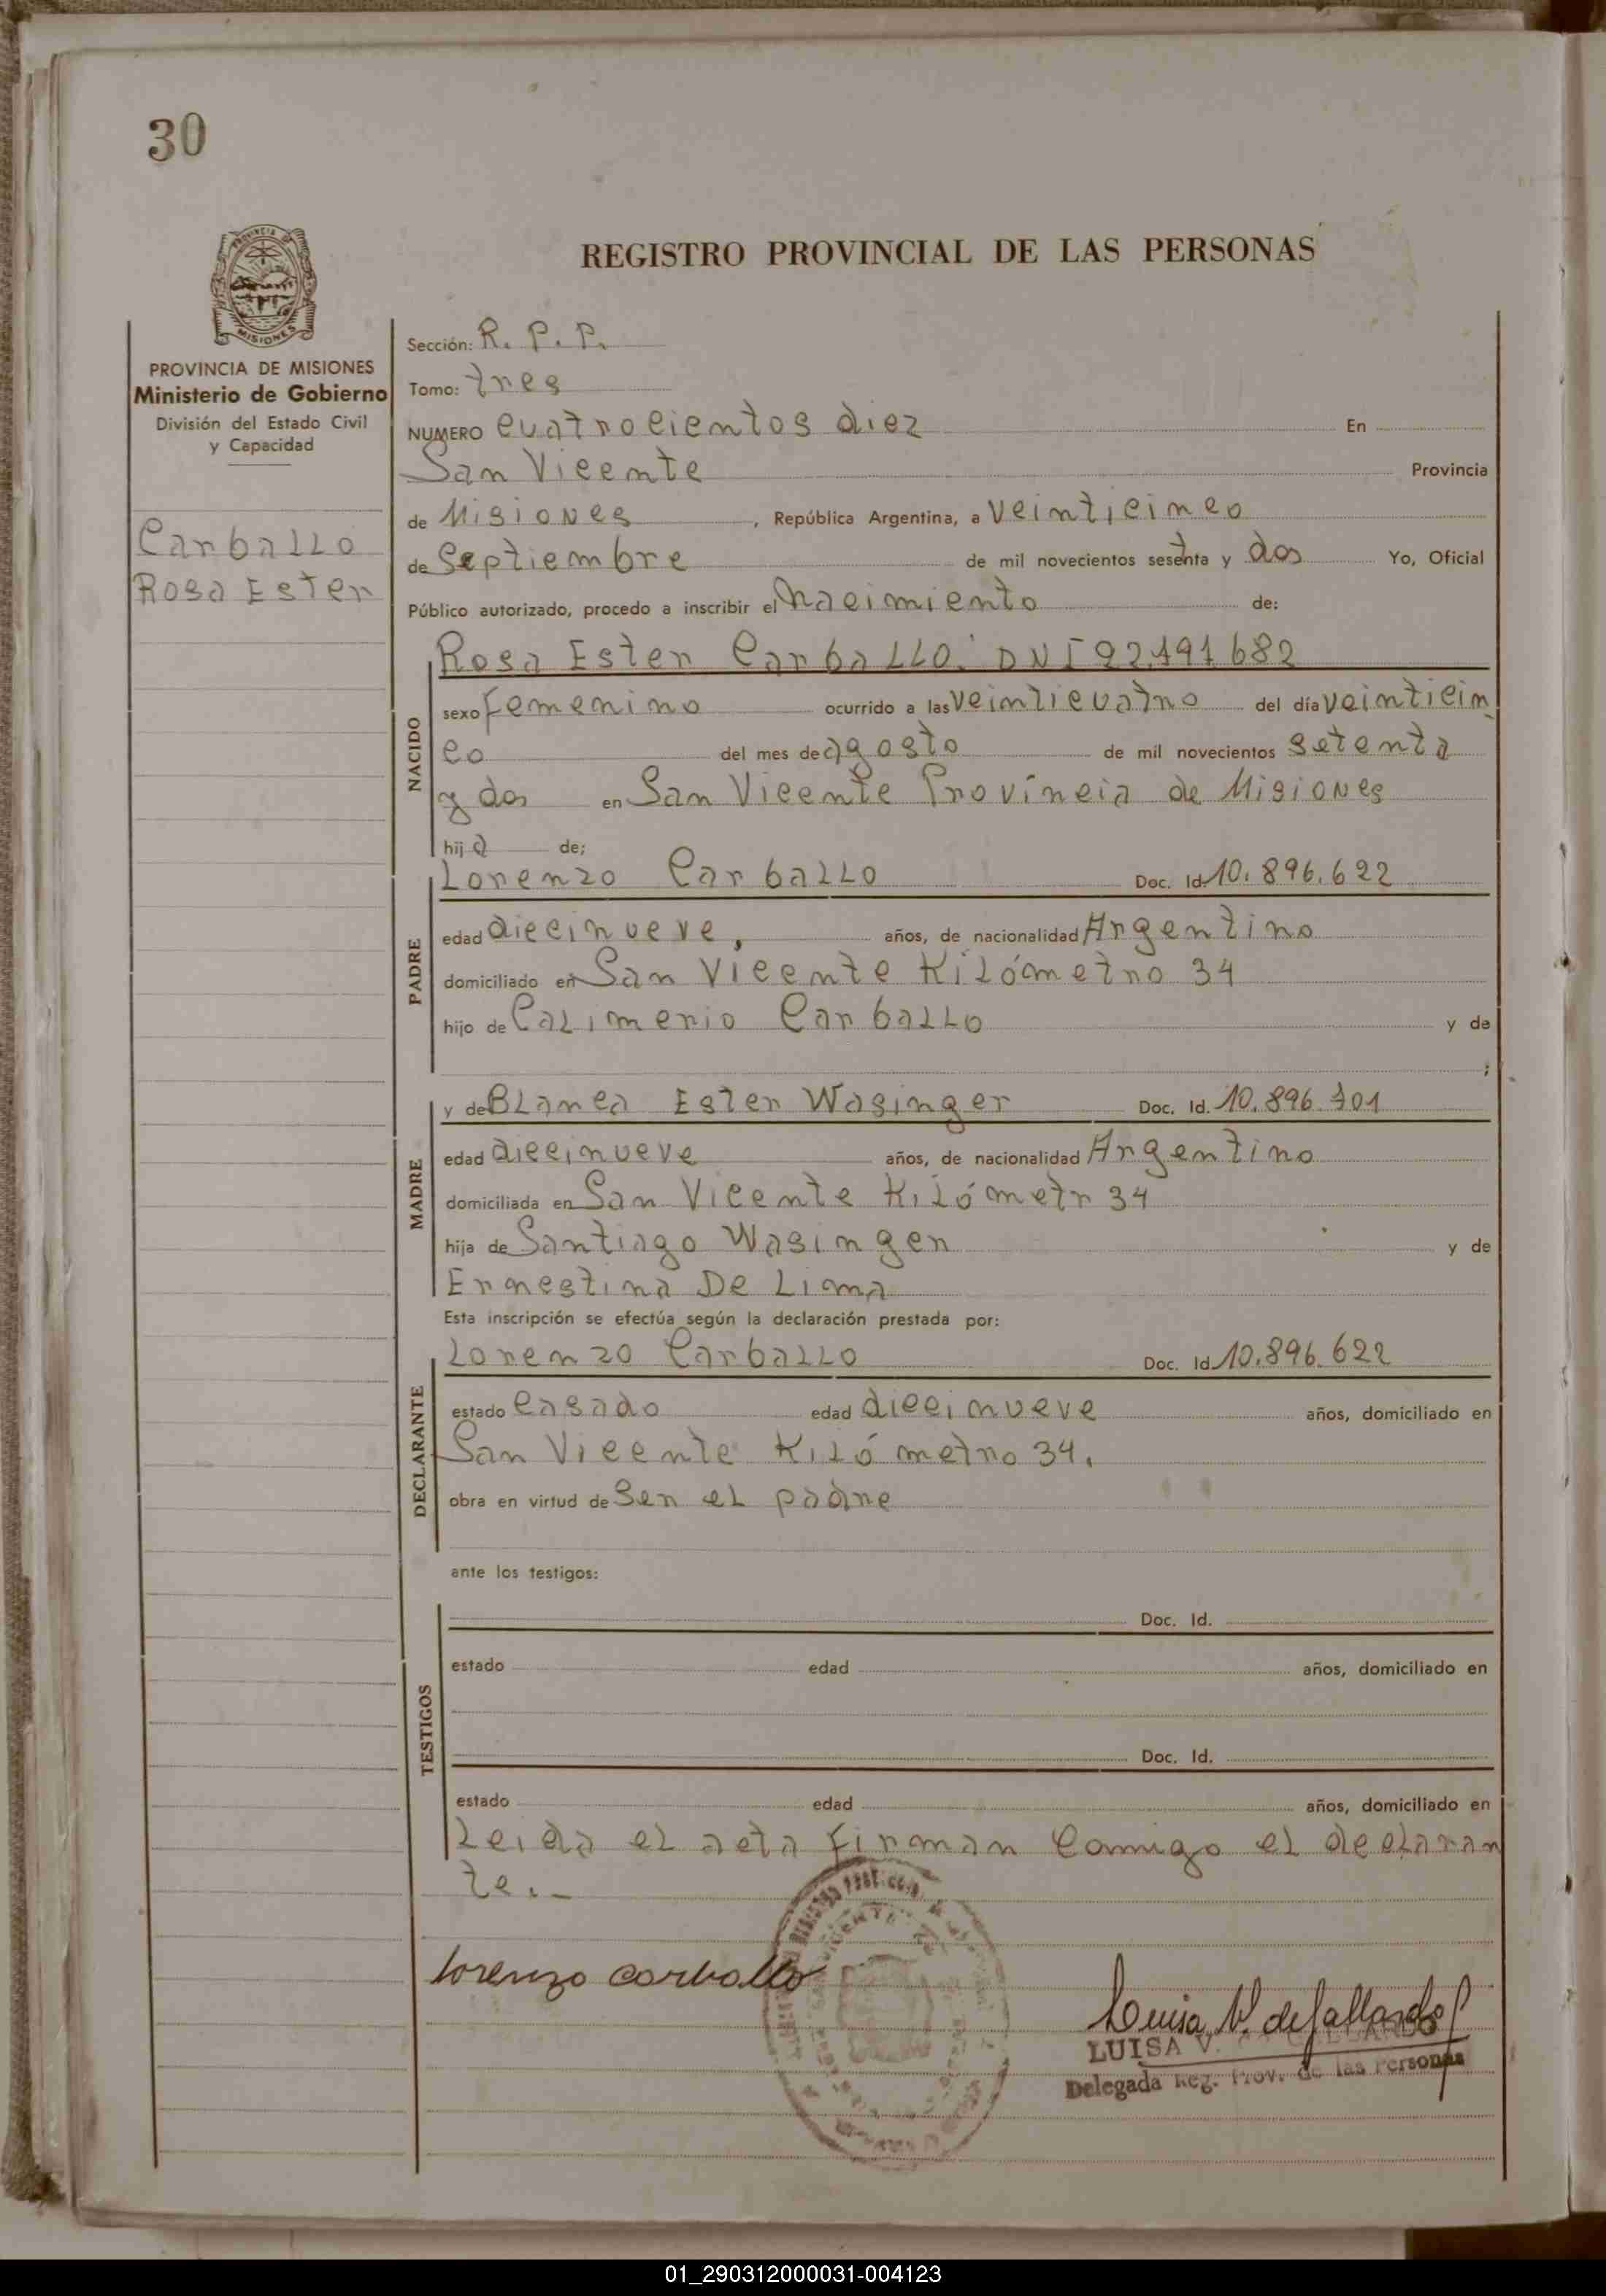 30
REGISTRO PROVINCIAL DE LAS PERSONAS
PROVINCIA DE MISIONES
Ministerio de Gobierno
División del Estado Civil
y Capacidad
Carballo
Rosa Ester
Sección: R. P. P.
Tomo: tres
NUMERO cuatrocientos diez En
San Vicente Provincia
de Misiones, República Argentina, a veinticinco
de Septiembre de mil novecientos sesenta y dos Yo, Oficial
Público autorizado, procedo a inscribir el nacimiento de:
Rosa Ester Carballo. DNI 92.191682
NACIDO
sexo femenino ocurrido a las veinticuatro del día veinticin
co del mes de agosto de mil novecientos setenta
y dos en San Vicente Província de Misiones
hija de;
PADRE
Lorenzo Carballo Doc. Id. 10.896.622
edad diecinueve, años, de nacionalidad Argentino
domiciliado en San Vicente Kilómetro 34
hijo de Calimerio Carballo y de
;
MADRE
y de Blanca Ester Wasinger Doc. Id. 10.896.701
edad diecinueve años, de nacionalidad Argentino
domiciliada en San Vicente Kilómetr 34
hija de Santiago Wasinger y de
Ernestina De Lima
Esta inscripción se efectúa según la declaración prestada por:
DECLARANTE
Lorenzo Carballo Doc. Id. 10.896.622
estado casado edad diecinueve años, domiciliado en
San Vicente Kilómetro 34.
obra en virtud de Ser el padre
ante los testigos:
TESTIGOS
Doc. Id.
estado edad años, domiciliado en
Doc. Id.
estado edad años, domiciliado en
Leida el acta firman Comigo el declaran
te.-
lorenzo carballo
Luisa V. de Gallardo
LUISA V.
Delegada Reg. Prov. de las Personas
01_290312000031-004123